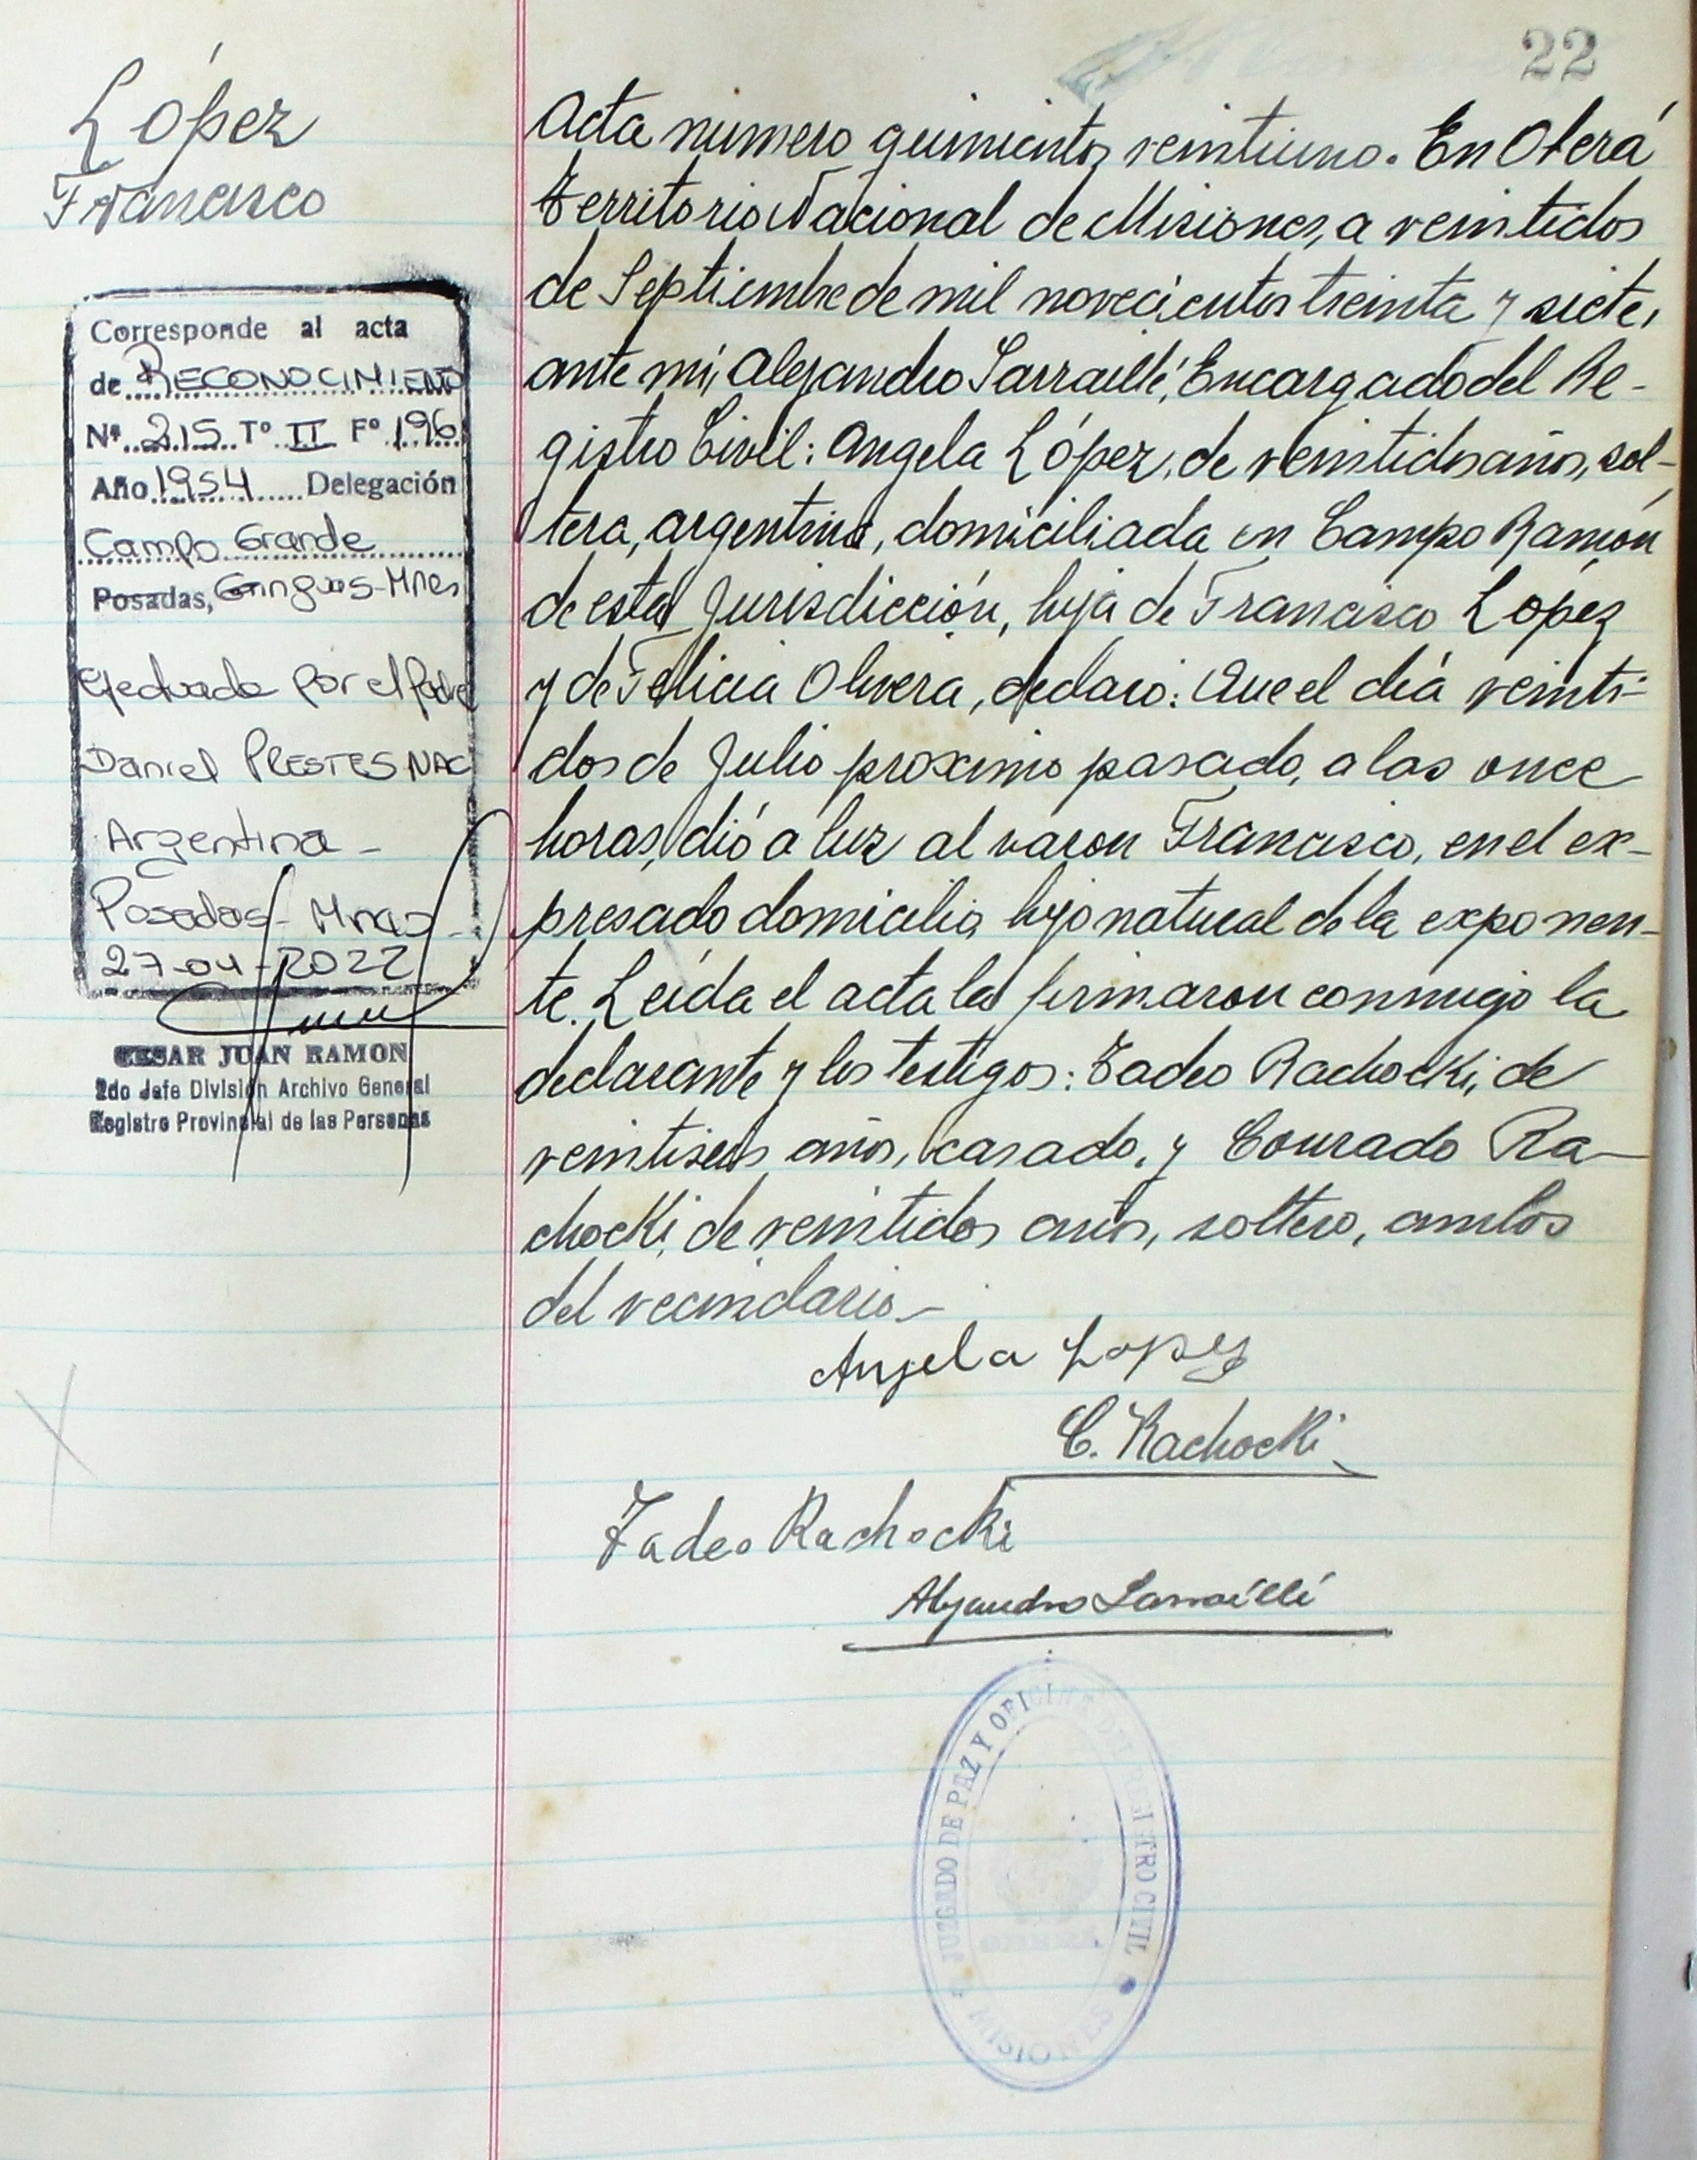 22
López
Francisco
Corresponde al acta
de RECONOCIMIENTO
Nº 215 Tº II Fº 196
Año 1954 Delegación
Campo Grande
Posadas,
efectuada por el padre
Daniel PRESTES NAC
Argentina -
Posadas - Mnes
27-04-2022
CESAR JUAN RAMON
2do Jefe División Archivo General
Registro Provincial de las Personas
Acta numero quinientos veintiuno. En Oberá
Territorio Nacional de Misiones, a veintidos
de Septiembre de mil novecientos treinta y siete,
ante mi, Alejandro Sarraillé, Encargado del Re-
gistro Civil: Angela López, de veintidos años, sol-
tera, argentina, domiciliada en Campo Ramón
de esta Jurisdicción, hija de Francisco López
y de Felicia Olivera, declaró: Que el día veinti-
dos de Julio proximo pasado, a las once
horas, dió a luz al varon Francisco, en el ex-
presado domicilio, hijo natural de la exponen-
te. Leída el acta la firmaron conmigo la
declarante y los testigos: Tadeo Rachocki, de
veintiseis años, casado, y Conrado Ra-
chocki, de veintidos años, soltero, ambos
del vecindario.-
Angela Lopez
C. Rachocki
Tadeo Rachocki
Alejandro Sarraillé
JUZGADO DE PAZ Y OFICINA DEL REGISTRO CIVIL
MISIONES